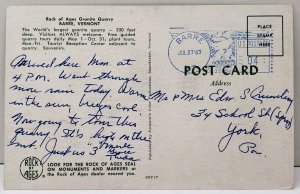 Rock of Ages Granite Quarry
BARRE, VERMONT
The World's largest granite quarry - 350 feet
deep. Visitors ALWAYS welcome. Free guided
quarry tours daily May 1-Oct. 31, plant tours,
Mon.-Fri. Tourist Reception Center adjacent to
quarry. Souvenirs available.
Arrived here Mon at
4 P.M. Went through
more rain today. Warm
in the sun,
Now going to tour this
quarry! It's high on the
Just us 3
ROCK OF AGES
LOOK FOR THE ROCK OF AGES SEAL
ON MONUMENTS AND MARKERS at the
Rock of Ages dealer nearest you.
BARRE
JUL 23 '63
PLACE
STAMP
HERE
POST CARD
Address
Mr & Mrs Edw. S.
54 School St
York,
Pa.